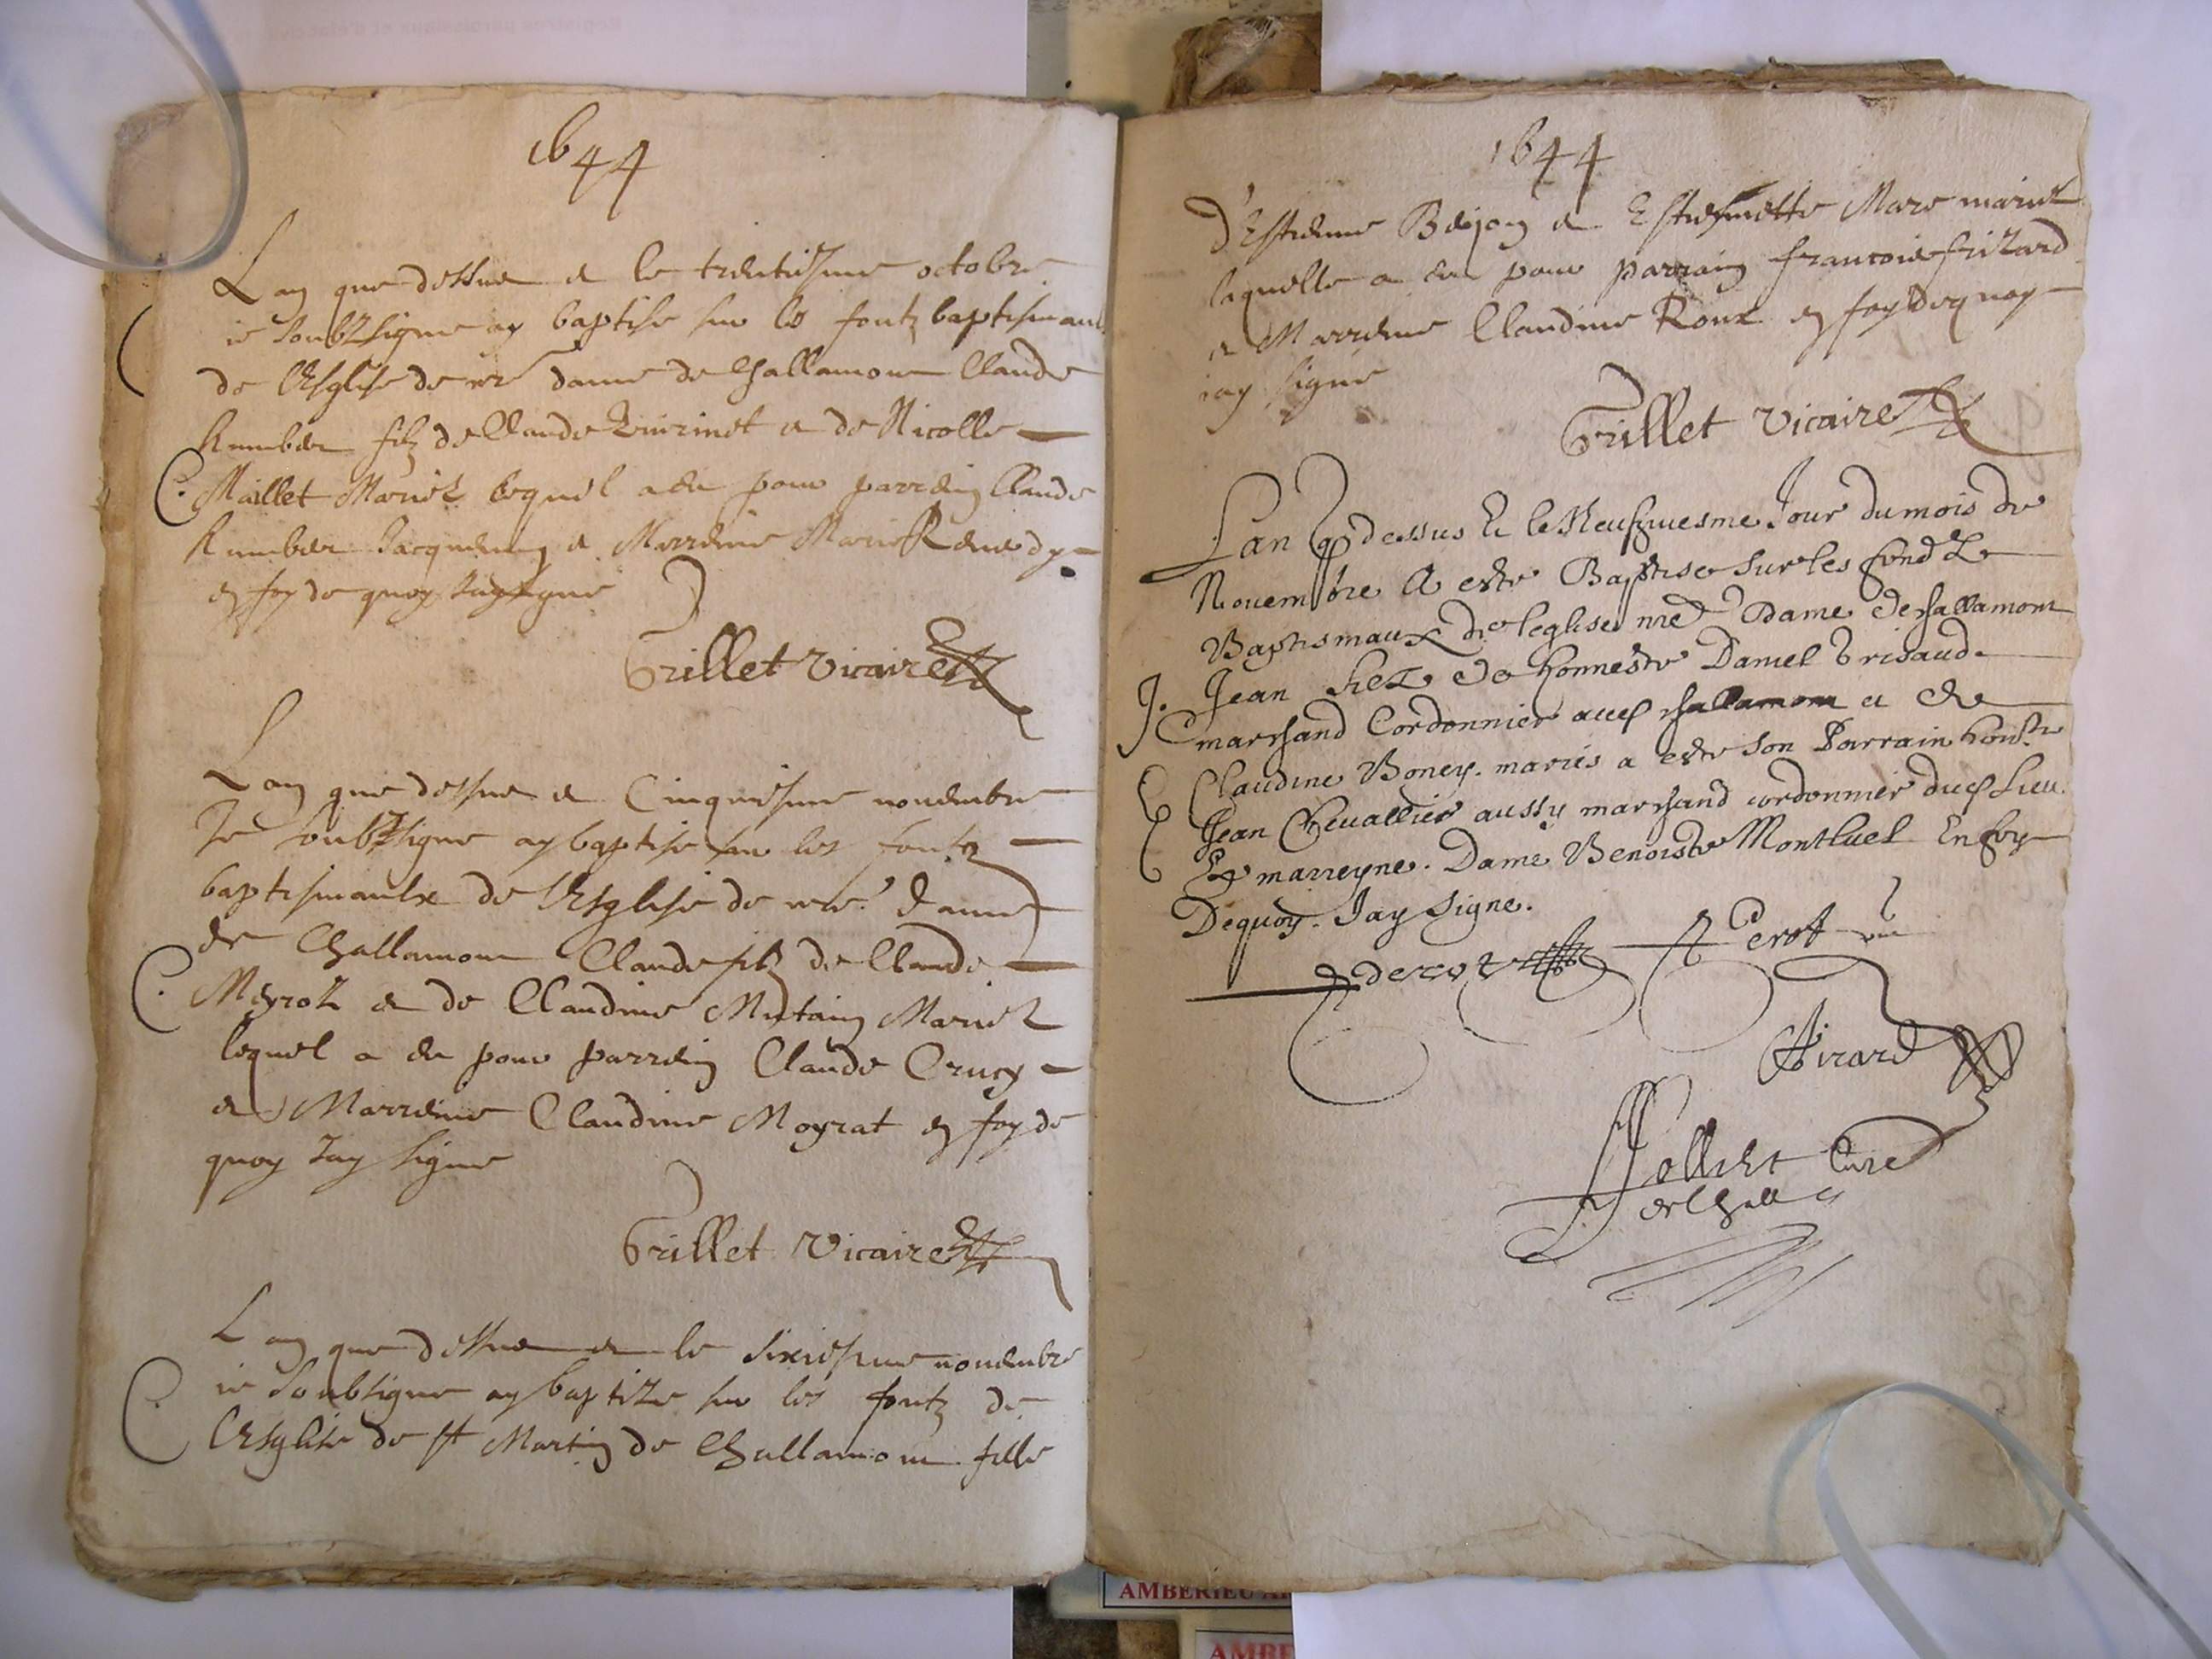 1644
Lan que dessus et le trentiesme octobre
ie soubzsigne ay baptise sur les fontz baptismaux
de lesglise de nre dame de Challamont Claude
Humbert filz de Claude et de Nicolle
C. Maillet Mariez lequel a eu pour parrein Claude
Humbert Jacquemin et Marreine Marie
en foy de quoy Jay signe
Trillet vicaire
Lan que dessus et Cinquiesme novembre
Je soubzsigne ay baptise sur les fontz
baptismaulx de lesglise de nre dame
de Challamont Claude filz de Claude
C. Meyrot et de Claudine Mariez
lequel a eu pour parrein Claude Crucy
et Marreine Claudine Moyrat en foy de
quoy Jay signe
Trillet Vicaire
Lan que dessus et le sixiesme novembre
ie soubsigne ay baptize sur les fontz de
C. lesglise de st Martin de Challamont fille
1644
d'Estienne et Estiennette Mare mariez
laquelle a eu pour parrain francois frizard
et Marreine Claudine Roux en foy de quoy
iay signe
Trillet vicaire
Lan q dessus Et le Neufzuiesme Jour du mois de
Nouembre A este Baptise sur les fondz
Baptismaux de leglise nre Dame de challamont
J. Jean filz de honneste Daniel
marchand Cordonnier audt challamont et de
Claudine Boney. mariés a este son Parrain honste
Jean Cheuallier aussy marchand cordonnier dudt Lieu.
Et marreyne. Dame Benoiste Montluel En foy
Dequoy. Jay signe.
Perot
Girard
Jollivet Cure
de Chall
AMBERIEU